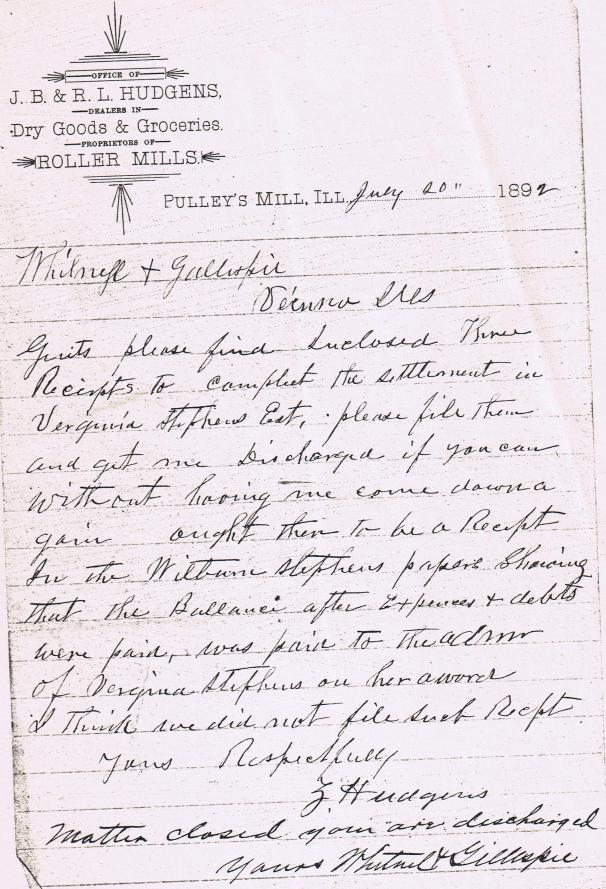 OFFICE OF
J. B. & R. L. HUDGENS,
DEALERS IN
Dry Goods & Groceries.
PROPRIETORS OF
ROLLER MILLS.
PULLEY'S MILL, ILL. July 20" 1892
Whitnell + Gallispie
Vienna Ills
Gents please find Inclosed Three
Recipts to compleet the settlement in
Verginia Stephens Est, please file them
and get me Discharged if you can
without having me come down a
gain ought there to be a Recept
In the Wilburn Stephens papers Showing
that the Ballance after Expences & debts
were paid, was paid to the admr
of Verginia Stephens on her award
I think we did not file such Recpt
Yours Respectfully
Z Hudgens
Matter closed your are discharged
Yours Whitnel & Gillespie